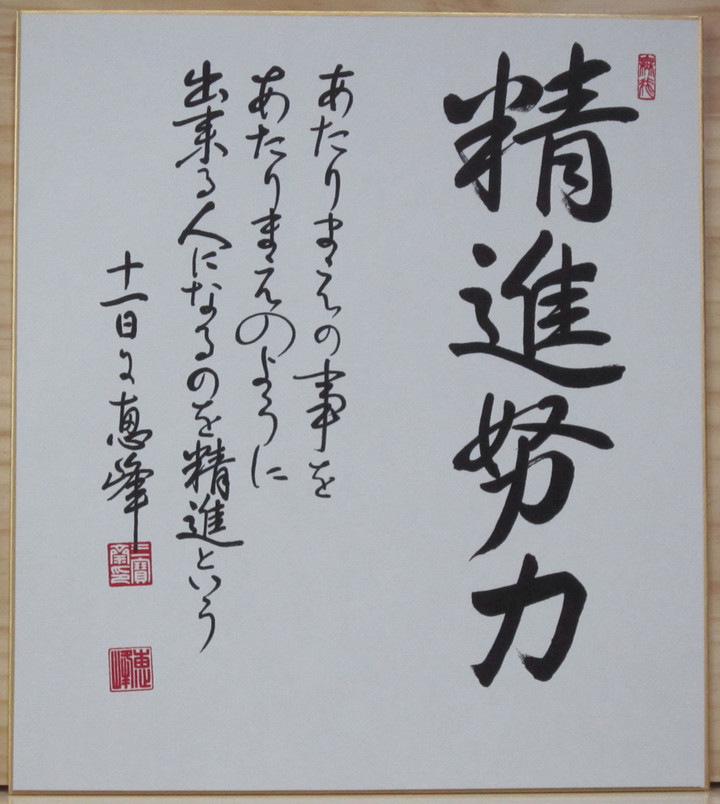 精進努力
あたりまえの事を
あたりまえのように
出来る人になるのを精進という
十一日文恵峰
恵峰